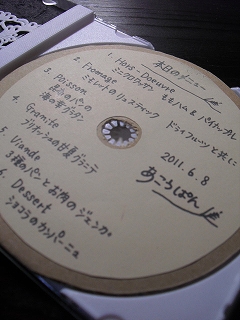 本日のメニュー
1. Hors-Doeuvre
ミニクロワッサン 生ハム & パイナップル
2. Fromage
ミモレットのリュスティック ドライフルーツと共に
3. Poisson
法のパンの
海の幸グラタン
4. Granité
ブリオッシュの甘夏グラニテ
5. Viande
3種のパンとお肉のジェンガ
6. Dessert
ショコラのカンパーニュ
2011.6.8
あころぱん